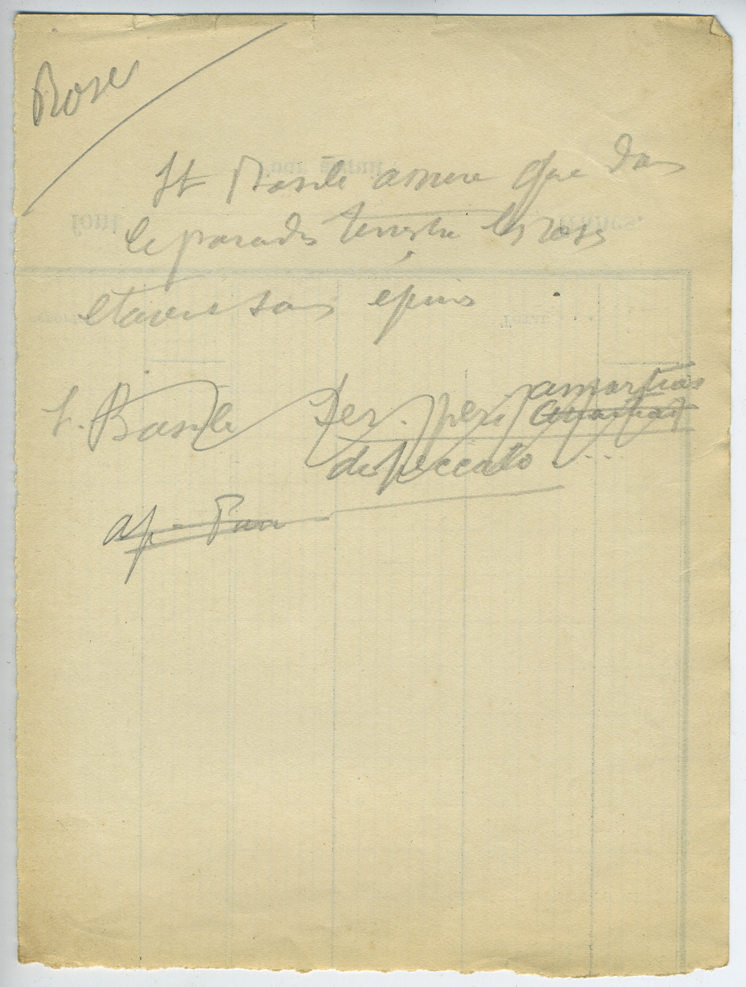 Rose
St Basile assure que dans
le paradis terrestre les roses
etaient sans epines
S. Basile Ser. peri amartias
de peccato ...
ap.